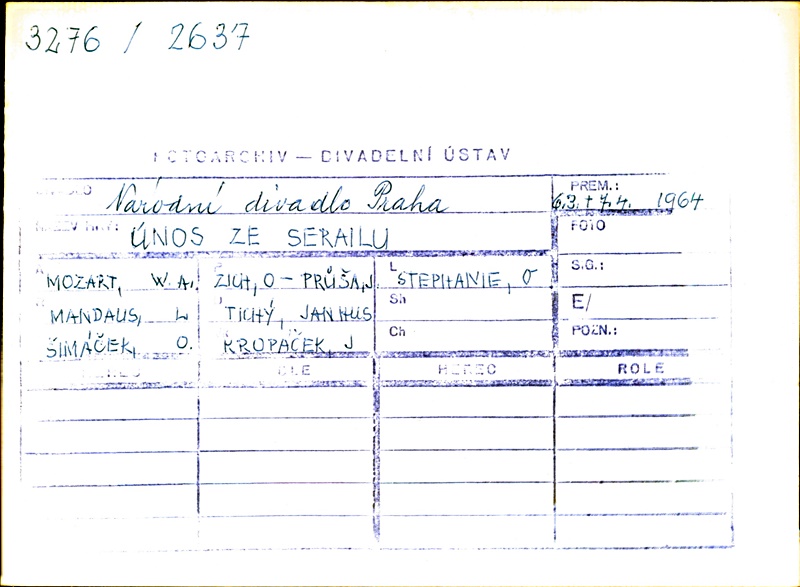 3276 / 2637
FOTOARCHIV — DIVADELNÍ ÚSTAV
Národní divadlo Praha
PREM.:
6.3. + 7.4. 1964
ÚNOS ZE SERAILU
FOTO
MOZART, W. A. ZICH, O – PRŮŠA, J. L STEPHANIE, O
S.G.:
MANDAUS, L TICHÝ, JAN HUS Sh
E/
ŠIMÁČEK, O. KROPÁČEK, J Ch
POZN.:
HEREC ROLE